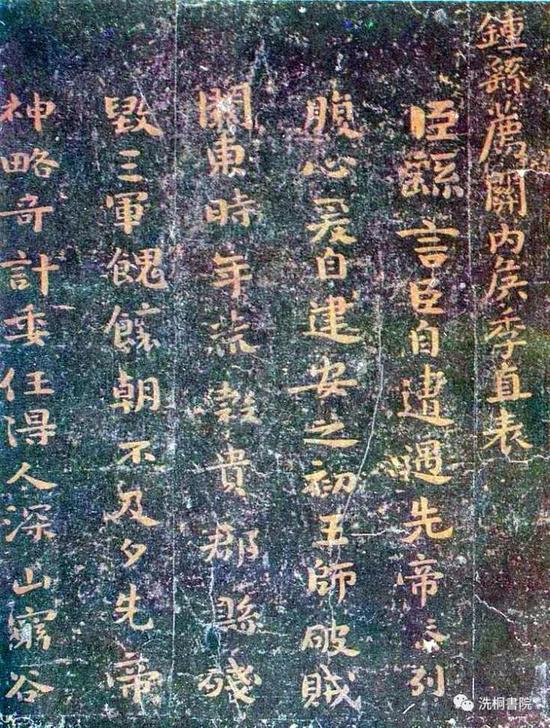 鍾繇薦關内侯季直表
臣繇言臣自遭遇先帝忝列
腹心爰自建安之初王師破賊
關東時年荒穀貴郡縣殘
毀三軍餽饟朝不及夕先帝
神略奇計委任得人深山窮谷
洗桐書院